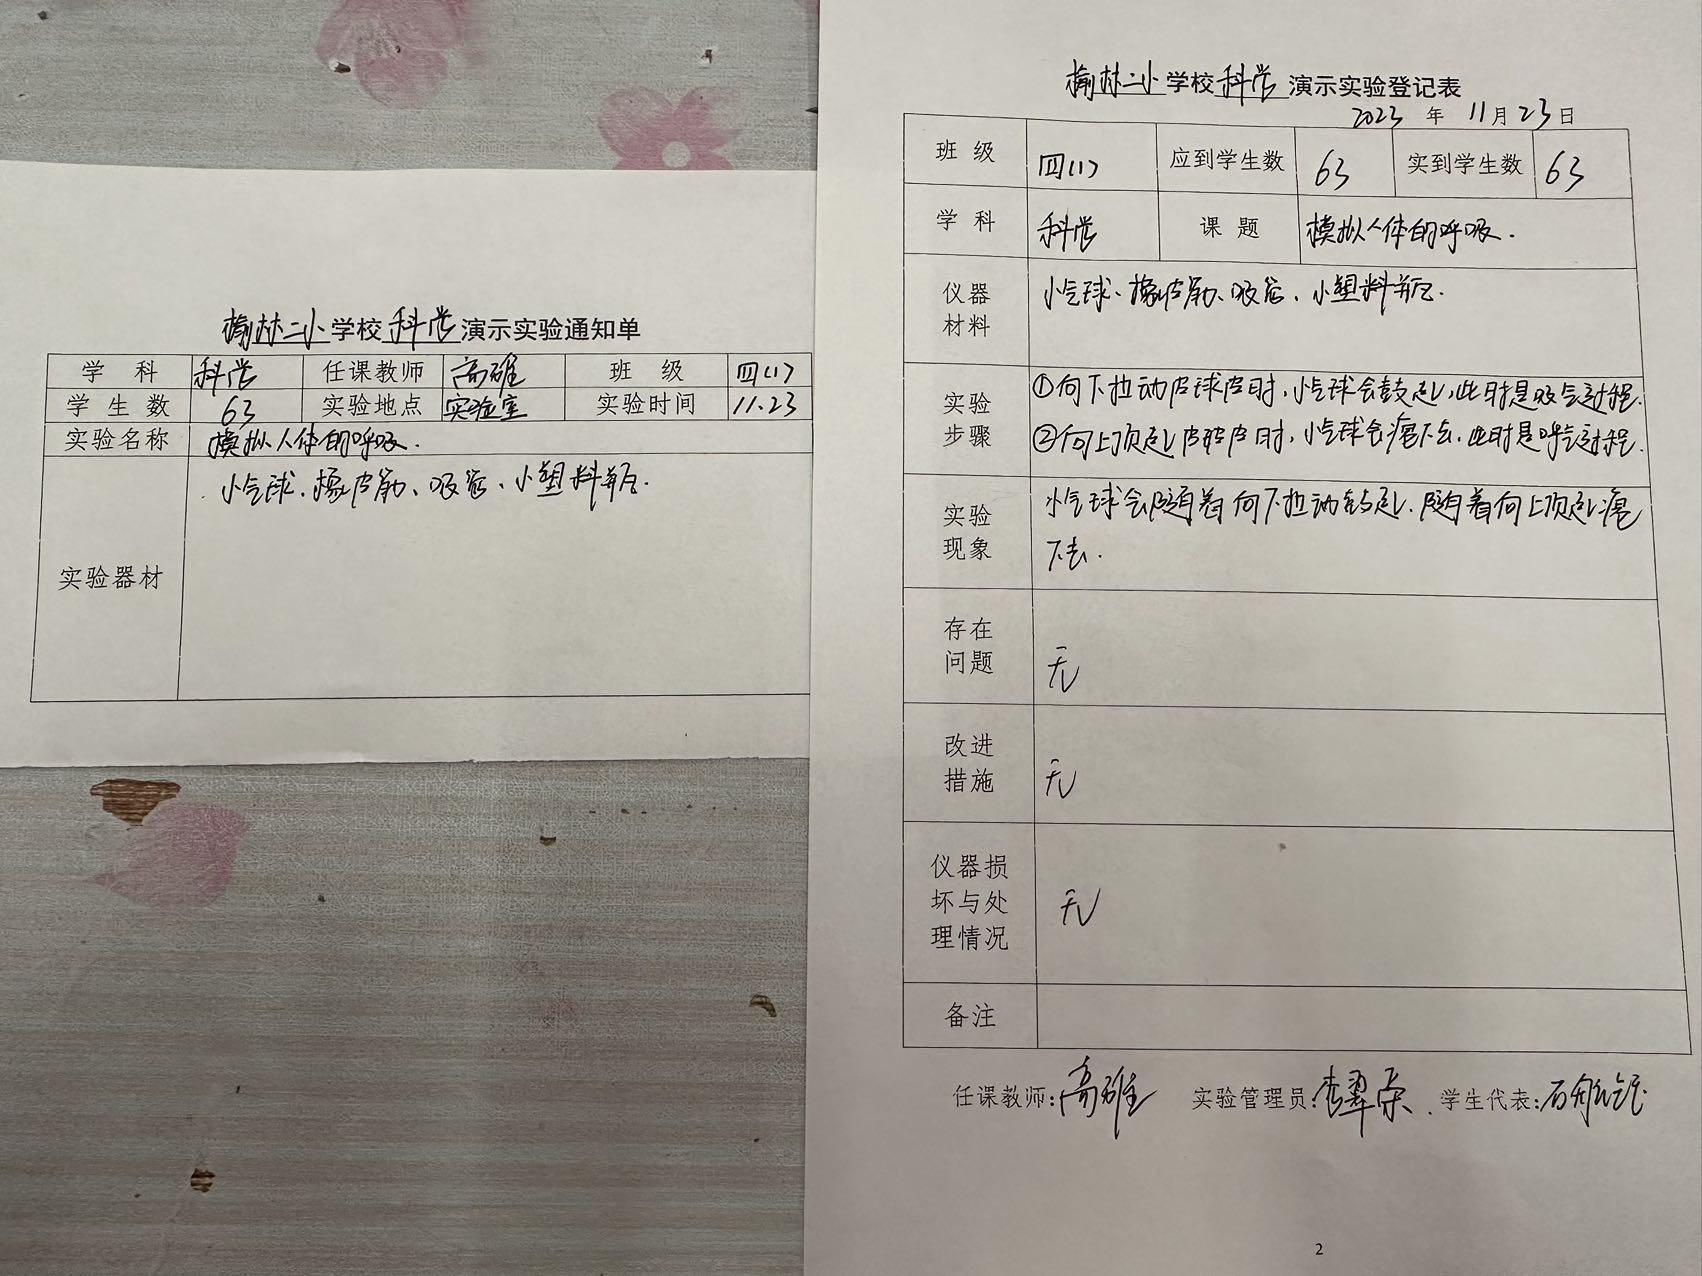 榆林二小学校科学演示实验通知单
学科 科学 任课教师 高雄 班级 四(1)
学生数 63 实验地点 实验室 实验时间 11.23
实验名称 模拟人体的呼吸.
实验器材 小气球、橡皮筋、吸管、小塑料瓶.
榆林二小学校科学演示实验登记表
2023年11月23日
班级 四(1) 应到学生数 63 实到学生数 63
学科 科学 课题 模拟人体的呼吸.
仪器材料 小气球、橡皮筋、吸管、小塑料瓶.
实验步骤 ①向下拉动皮球皮时,小气球会鼓起,此时是吸气过程.
②向上顶起皮球皮时,小气球会瘪下去,此时是呼气过程.
实验现象 小气球会随着向下拉动鼓起.随着向上顶起瘪
下去.
存在问题 无
改进措施 无
仪器损坏与处理情况 无
备注
任课教师:高雄 实验管理员: 学生代表:
2